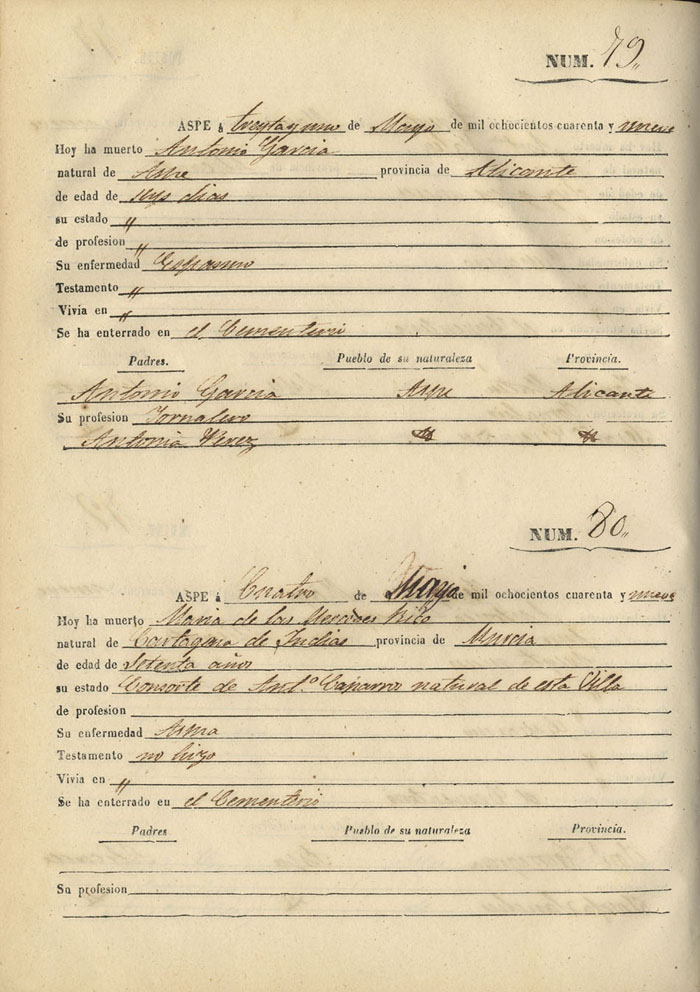 NUM. 79„
ASPE á treytayuno de Mayo de mil ochocientos cuarenta y nueve
Hoy ha muerto Antonio Garcia
natural de Aspe provincia de Alicante
de edad de seys dias
su estado „
de profesion „
Su enfermedad Espasmo
Testamento „
Vivia en „
Se ha enterrado en el Cementerio
Padres. Pueblo de su naturaleza Provincia.
Antonio Garcia Aspe Alicante
Su profesion Jornalero
Antonia Perez
NUM. 80„
ASPE á Cuatro de Mayo de mil ochocientos cuarenta y nueve
Hoy ha muerto Maria de las Mercedes Rico
natural de Cartagena de Indias provincia de Murcia
de edad de Setenta años
su estado Consorte de Ant.º Cañarro natural de esta Villa
de profesion
Su enfermedad Asma
Testamento no hizo
Vivia en „
Se ha enterrado en el Cementerio
Padres Pueblo de su naturaleza Provincia.
Su profesion